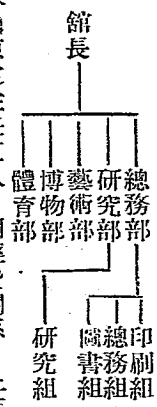 舘長
總務部
研究部
藝術部
博物部
體育部
印刷組
總務組
圖書組
研究組